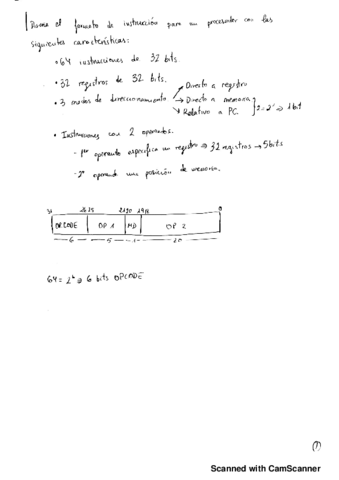 Diseñe el formato de instrucción para un procesador con las
siguientes características:
• 64 instrucciones de 32 bits.
• 32 registros de 32 bits.
• 3 modos de direccionamiento → Directo a registro
→ Directo a memoria
→ Relativo a PC.
2 = 2¹ ⇒ 1 bit
• Instrucciones con 2 operandos.
- 1er operando especifica un registro ⇒ 32 registros → 5 bits
- 2º operando una posición de memoria.
31 26 25 21 20 19 0
OPCODE OP 1 MD OP 2
6 5 1 20
64 = 2⁶ 6 bits OPCODE
(1)
Scanned with CamScanner